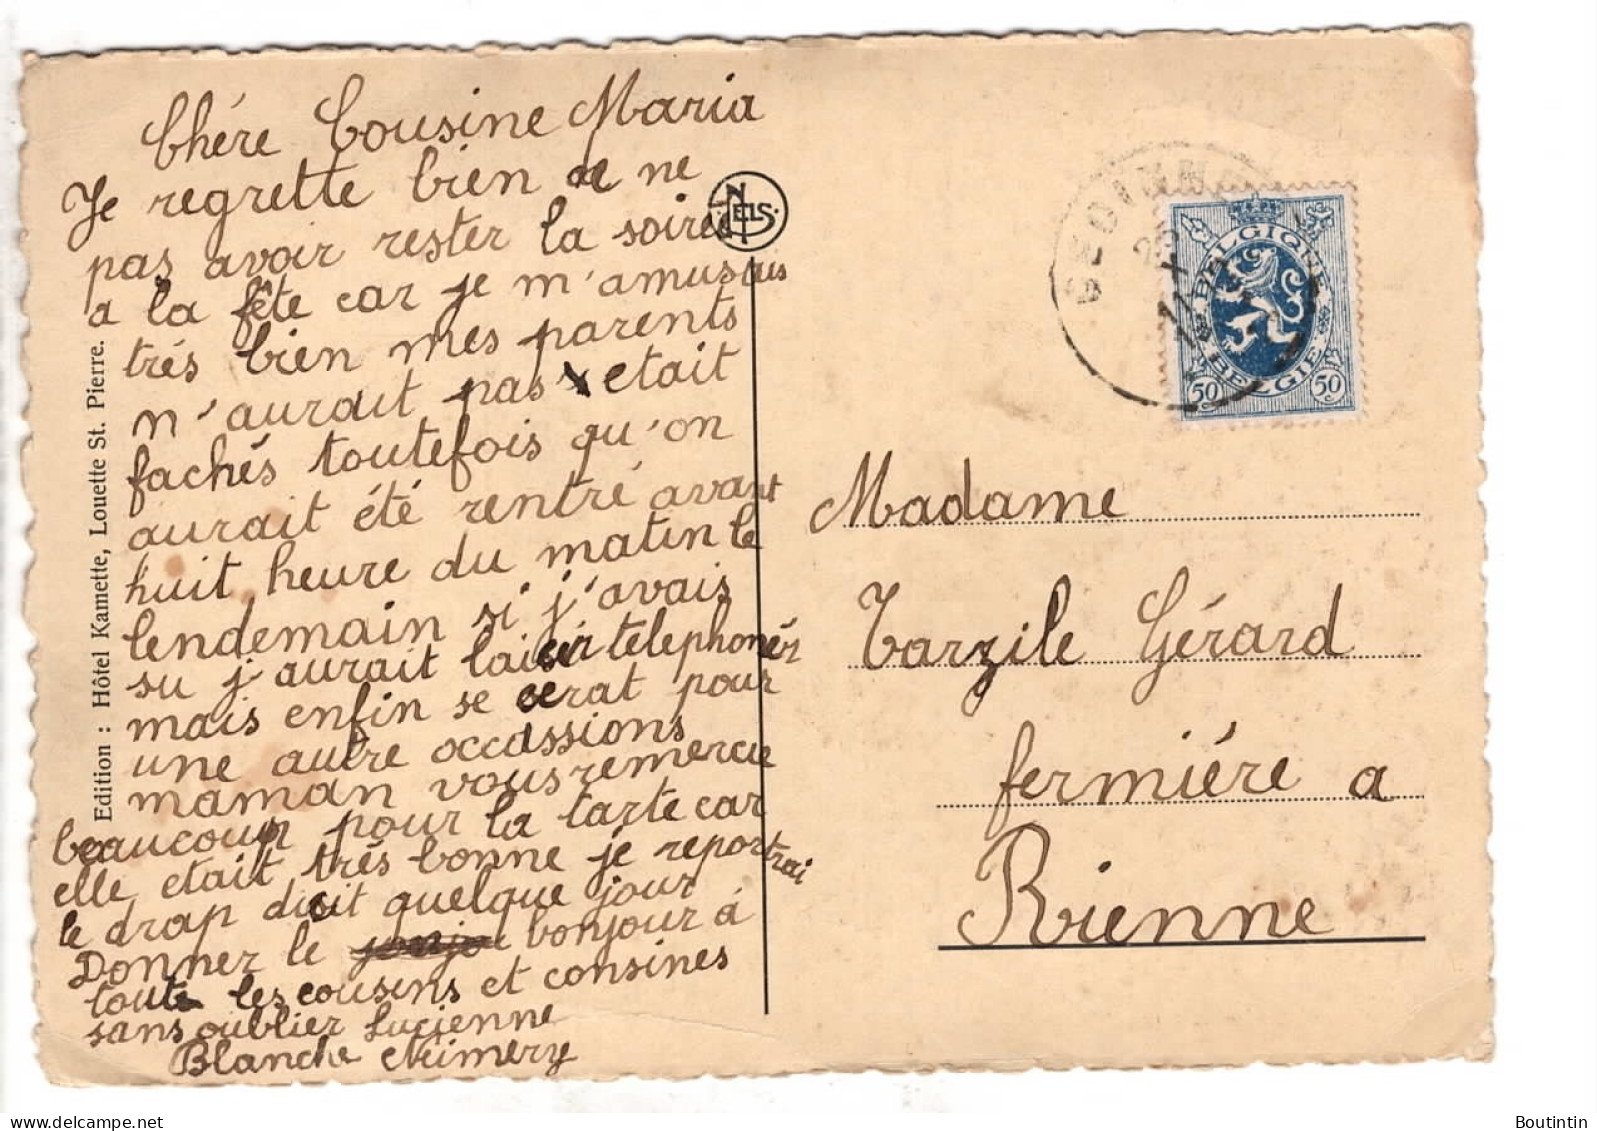 Chére Cousine Maria
Je regrette bien de ne
pas avoir rester la soireé
a la fête car je m'amusais
trés bien mes parents
n'aurait pas etait
fachés toutefois qu'on
aurait été rentré avant
huit heure du matin le
lendemain si j'avais
su j'aurait laiser telephonér
mais enfin se serat pour
une autre occassions
maman vous remercie
beaucoup pour la tarte car
elle etait trés bonne je reportrai
le drap dicit quelque jour
Donner le bonjour á
toute les cousins et consines
sans oublier Lucienne
Blanche Nimery
Edition : Hôtel Kamette, Louette St. Pierre.
NELS
GEDINNE
BELGIQUE
BELGIE
50 50
Madame
Tarzile Gérard
fermiére a
Rienne
delcampe.net
Boutintin